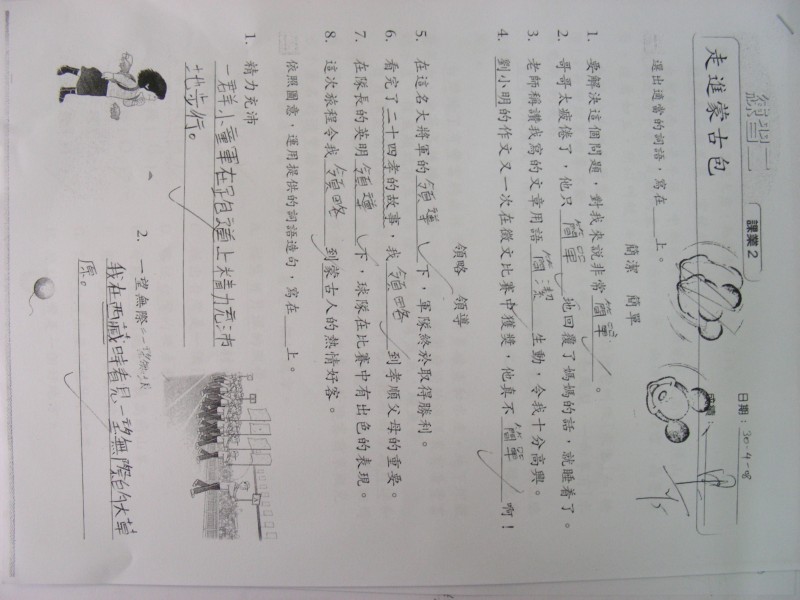 練習二
走進蒙古包
課業2
日期：30-4-08
選出適當的詞語，寫在＿＿上。
簡潔 簡單
1. 要解決這個問題，對我來說非常簡單。
2. 哥哥太疲倦了，他只簡單地回覆了媽媽的話，就睡着了。
3. 老師稱讚我寫的文章用語簡潔生動，令我十分高興。
4. 劉小明的作文又一次在徵文比賽中獲獎，他真不簡單啊！
領略 領導
5. 在這名大將軍的領導下，軍隊終於取得勝利。
6. 看完了二十四孝的故事，我領略到孝順父母的重要。
7. 在隊長的英明領導下，球隊在比賽中有出色的表現。
8. 這次旅程令我領略到蒙古人的熱情好客。
依照圖意，運用提供的詞語造句，寫在＿＿上。
1. 精力充沛
一羣小童軍在上精力充沛
地步行。
2. 一望無際
我在西藏時看見一望無際的大草
原。